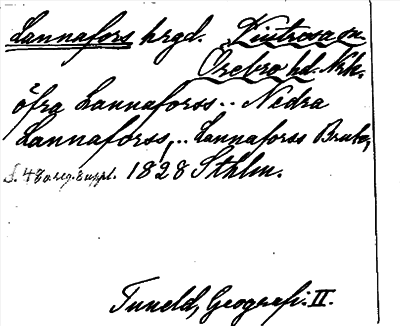 Lannafors hrgd. Tintrosa sn
Örebro hd. Nrk.
öfra Lannaforss.. Nedra
Lannaforss,.. Lannaforss Bruk,
S. 48 1828 Sthlm.
Tuneld, Geografi. II.